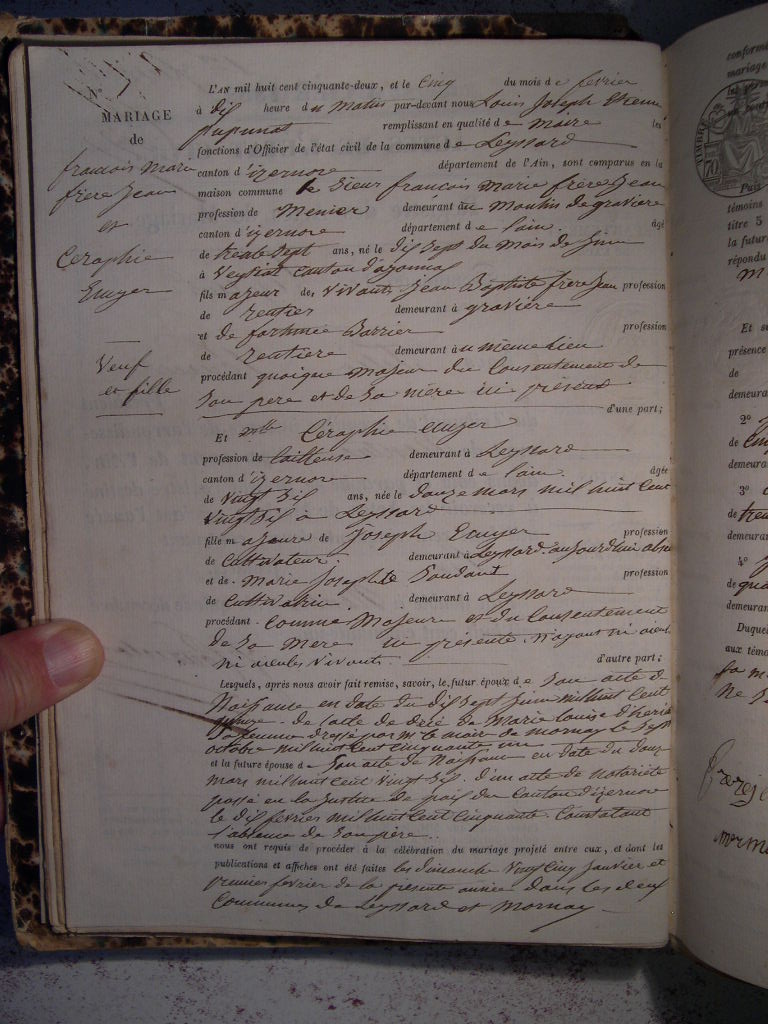 N°
MARIAGE
de
francois Marie
frère Jean
et
Céraphie
Emyer
Veuf
et fille
L'AN mil huit cent cinquante-deux, et le Cinq du mois de février
à dix heure du Matin par-devant nous Louis Joseph Etienne
remplissant en qualité de Maire les
fonctions d'Officier de l'état civil de la commune de Leyssard
canton d'izernore département de l'Ain, sont comparus en la
maison commune le Sieur francois Marie frère Jean
profession de Menier demeurant au Moulin de gravière
canton d'izernore département de l'ain. âgé
de trente Sept ans, né le dix Sept du Mois de Juin
à Veyziat canton d'oyonnax
fils majeur de, vivants Jean Baptiste frère Jean profession
de rentier demeurant à gravière
et de Barrier profession
de rentiere demeurant au même lieu
procédant quoique majeur du Consentement de
Son pere et de Sa mère ici présent
d'une part;
Et Mlle Céraphie Emyer
profession de tailleuse demeurant à Leyssard
canton d'izernore département de l'ain. âgée
de vingt Six ans, née le douze mars mil huit Cent
Vingt Six à Leyssard
fille majeure de Joseph Emyer profession
de Cultivateur. demeurant à Leyssard aujourd'hui absent
et de Marie Josephte Goudard profession
de Cultivatrice. demeurant à Leyssard
procédant Comme Majeure et du Consentement
de Sa Mere ici présente. N'ayant ni aieul
ni aieules Vivants. d'autre part;
Lesquels, après nous avoir fait remise, savoir, le futur époux de Son acte de
Naissance en date du dix Sept Juin mil huit Cent
quinze. de l'acte de décé de Marie Louise
Sa femme dressé par Mr le maire de Mornay le Sept
octobre mil huit Cent Cinquante un
et la future épouse de Son acte de Naissance en date du douze
mars mil huit Cent Vingt Six. d'un acte de notoriété
passé en la Justice de paix du Canton d'izernore
le dix février mil huit Cent Cinquante. Constatant
l'absence de Son père.
nous ont requis de procéder à la célébration du mariage projeté entre eux, et dont les
publications et affiches ont été faites les dimanche Vingt Cinq Janvier et
premier février de la présente année dans les deux
Communes de Leyssard et Mornay
mariage
TIMBRE
70
témoins
titre 5
la future
répondu
Et
présence
de
demeurant
2°
de
demeurant
3°
de
demeurant
4°
de
demeurant
Duquel
aux témoins